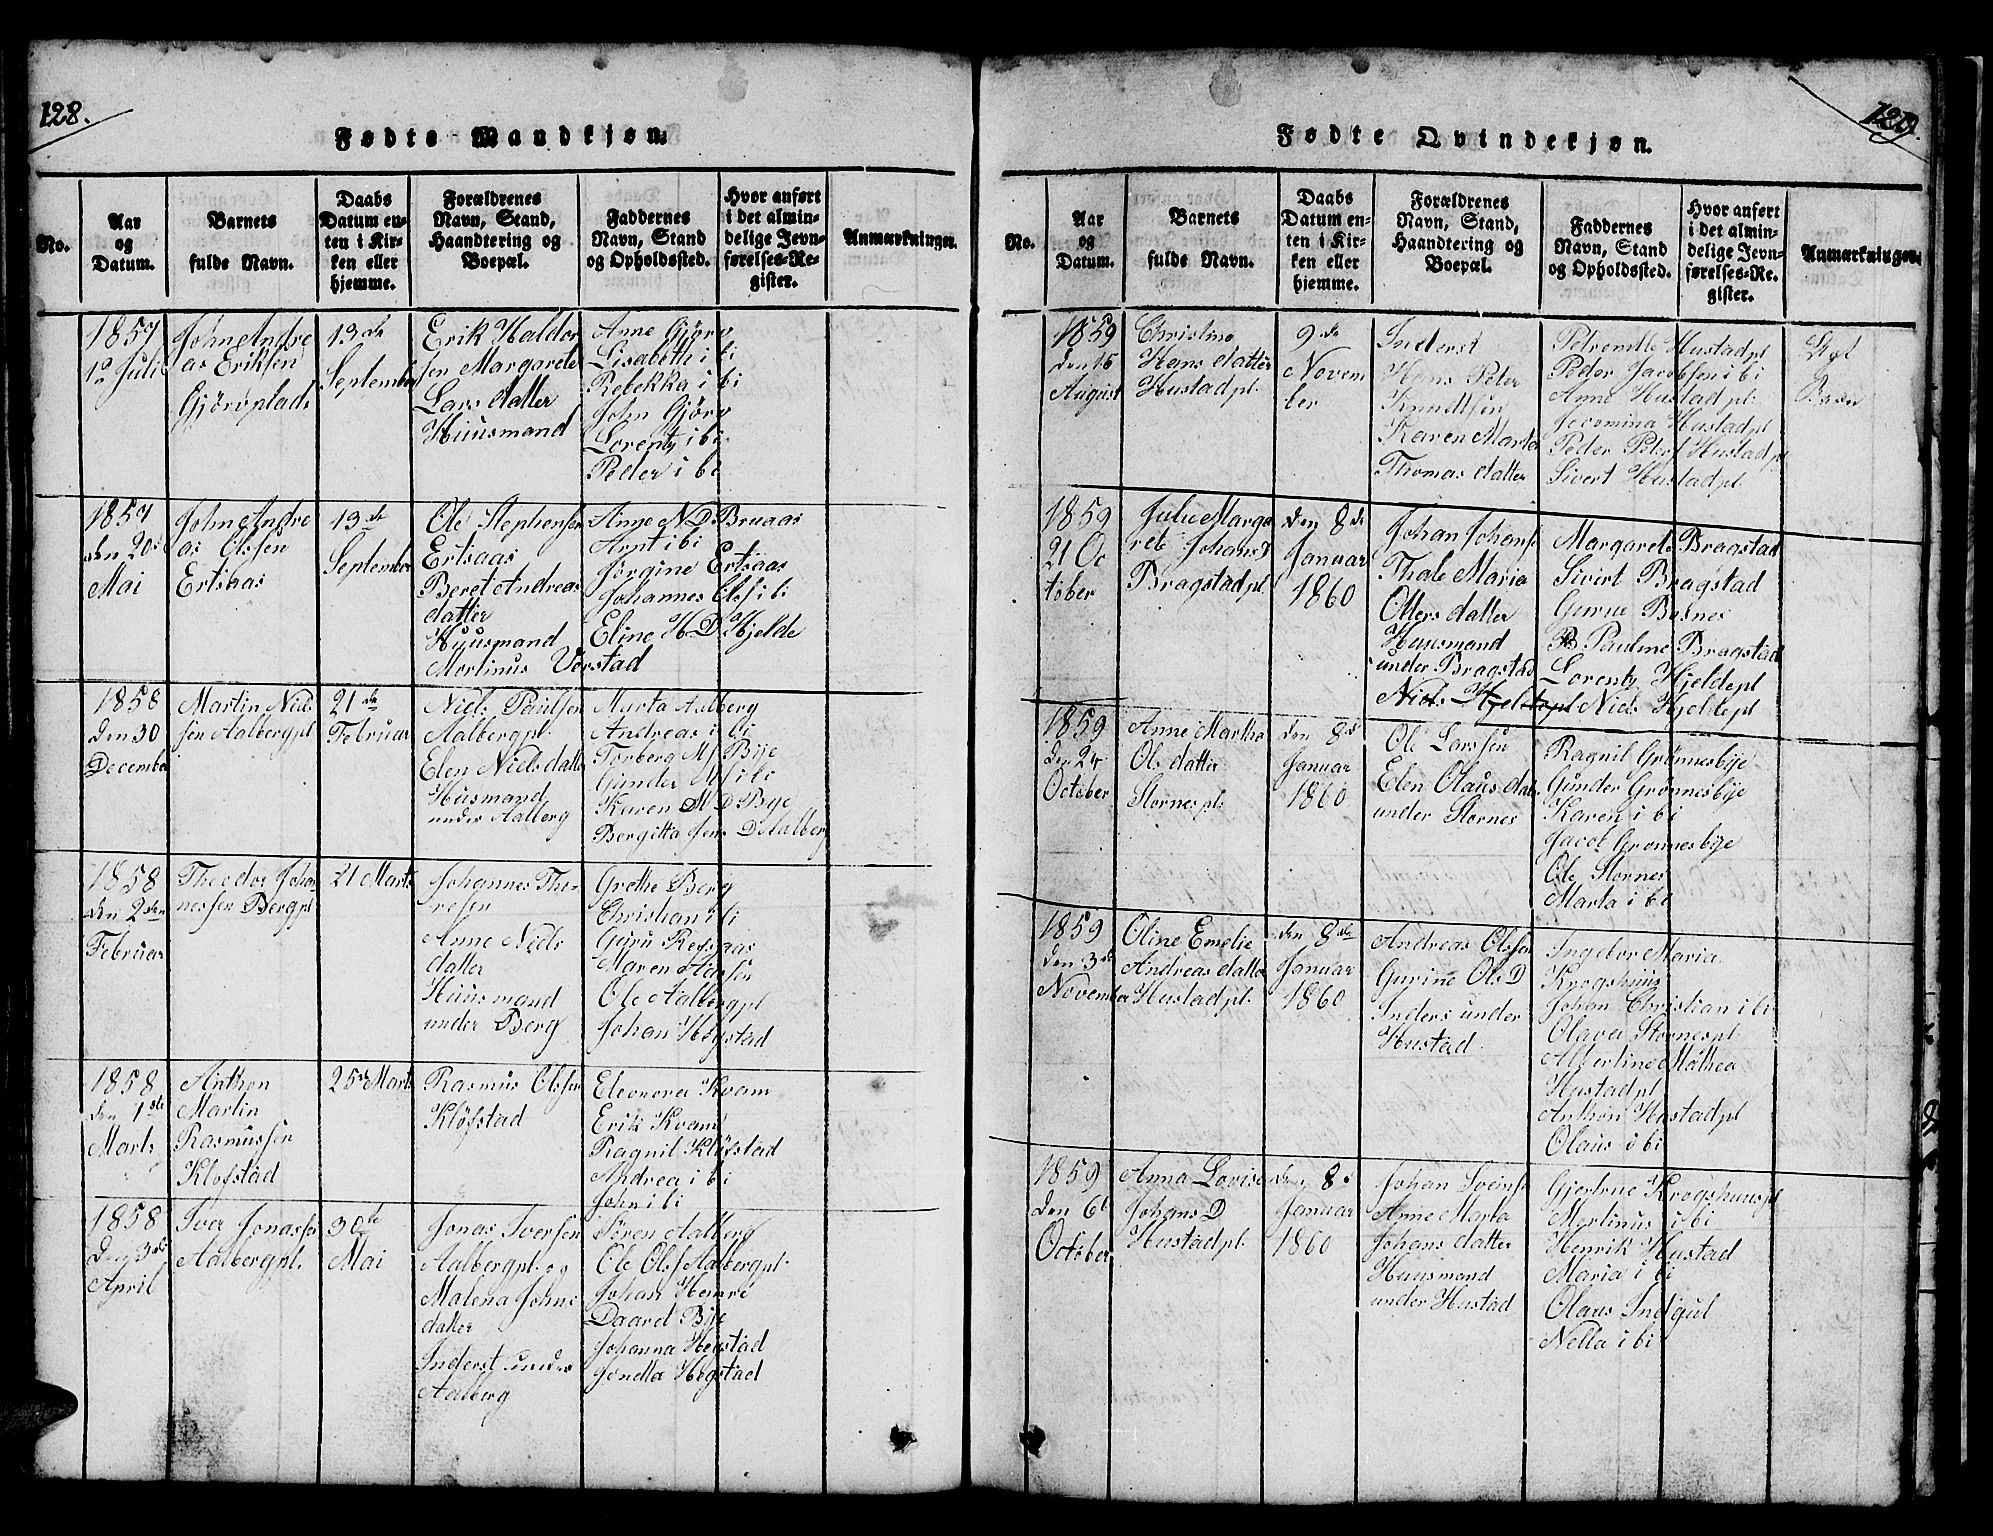 128.
Fødte Mandkjøn.
No.
Aar
og
Datum.
Barnets
fulde Navn.
Daabs
Datum en-
ten i Kir-
ken eller
hjemme.
Forældrenes
Navn, Stand,
Haandtering og
Boepæl.
Faddernes
Navn, Stand
og Opholdssted.
Hvor anført
i det almin-
delige Jevn-
førelses-Re-
gister.
Anmærkninger.
1857
1ª Juli
John Andre
as Eriksen
Gjörvplads
13 de
September
Erik Haldor
sen Margarete
Lars datter
Huusmand
Anne Gjörv
Lisabeth i bi
Rebekka i bi
John Gjörv
Lorentz i bi
Peder i bi
1857
den 20d
Mai
John Andre
as Olsen
Ertsaas
13 de
September
Ole Stephensen
Ertsaas
Beret Andreas
datter
Huusmand
Anne N D Bruaas
Arnt i bi
Jörgine Ertsaas
Johannes Olsf i bi
Eline H D Hjelde
Mortinus Vorstad
1858
den 30
December
Martin Niel
sen Aalbergpl
21 de
Februar
Niels Paulsen
Aalbergpl.
Elen Niels datter
Huusmand
under Aalberg
Marta Aalberg
Andreas i bi
Torberg Mf Bye
Gunder Mf i bi
Karen M D Bye
Bergitta Jens D Aalberg
1858
den 2den
Februar
Theodor Johan
nessen Bergpl
21 Marts
Johannes The-
resen
Anne Niels
datter
Huusmand
under Berg
Grethe Berg
Christian i bi
Guru Refsaas
Maren Aassen
Ole Aalbergpl
Johan Hegstad
1858
den 1ste
Marts
Anthon
Martin
Rasmussen
Klöfstad
25d Marts
Rasmus Olsen
Klöfstad
Eleonora Kvam
Erik Kvam
Ragnil Klöfstad
Andrea i bi
John i bi
1858
den 3de
April
Iver Jonassen
Aalbergpl.
30te
Mai
Jonas Iversen
Aalbergpl. og
Malena Johns
datter
Inderst under
Aalberg
Sören Aalberg
Ole Olsf Aalbergpl.
Johan Hemre
Daard Bye
Johanna Hegstad
Jonetta Hegstad
129.
Fødte Qvindekjøn.
No.
Aar
og
Datum.
Barnets
fulde Navn.
Daabs
Datum en-
ten i Kir-
ken eller
hjemme.
Forældrenes
Navn, Stand,
Haandtering og
Boepæl.
Faddernes
Navn, Stand
og Opholdssted.
Hvor anført
i det almin-
delige Jevn-
førelses-Re-
gister.
Anmærkninger.
1859
den 16
August
Christine
Hans datter
Hustadpl.
9 de
Novem
ber
Inderst
Hans Peter
Knudtsen
Karen Marta
Thomas datter
Petronelle Hustadpl
Peder Jacobsen i bi
Anne Hustadpl.
Jecomina Hustadpl
Peder Petersf Hustadpl
Sivert Hustadpl.
1859
21 Oc
tober
Julie Marga
rete Johans D
Bragstadpl.
den 8 de
Januar
1860
Johan Johansf
Thale Maria
Otters datter
Huusmand
under Bragstad
Niels Hjeldepl
Margarete Bragstad
Sivert Bragstad
Gurine Bosnes
Pauline Bragstad
Lorentz Hjeldepl
Niels Hjeldepl
1859
den 24
October
Anne Martha
Ols datter
Stornespl.
den 8d
Januar
1860
Ole Larssen
Elen Olaus datter
under Stornes
Ragnil Grönnesbye
Gunder Grönnesbye
Karen i bi
Jacob Grönnesbye
Ole Stornes
Marta i bi
1859
den 3de
November
Oline Emelie
Andreas datter
Hustadpl.
den 8de
Januar
1860
Andreas Olssen
Gurine Ols D
Inders under
Hustad
Ingebor Maria
Krogshuus
Johan Christian i bi
Olava Stornespl.
Albertine Mathea
Hustadpl
Anthon Hustadpl
Olaus i bi
1859
den 6t
October
Anna Lovise
Johans D
Hustadpl.
den 8d
Januar
1860
Johan Sveinsf
Anne Marta
Johans datter
Huusmand
under Hustad
Gjertrue Krogshuuspl
Martinus i bi
Henrik Hustad
Maria i bi
Olaus Indgul
Nella i bi